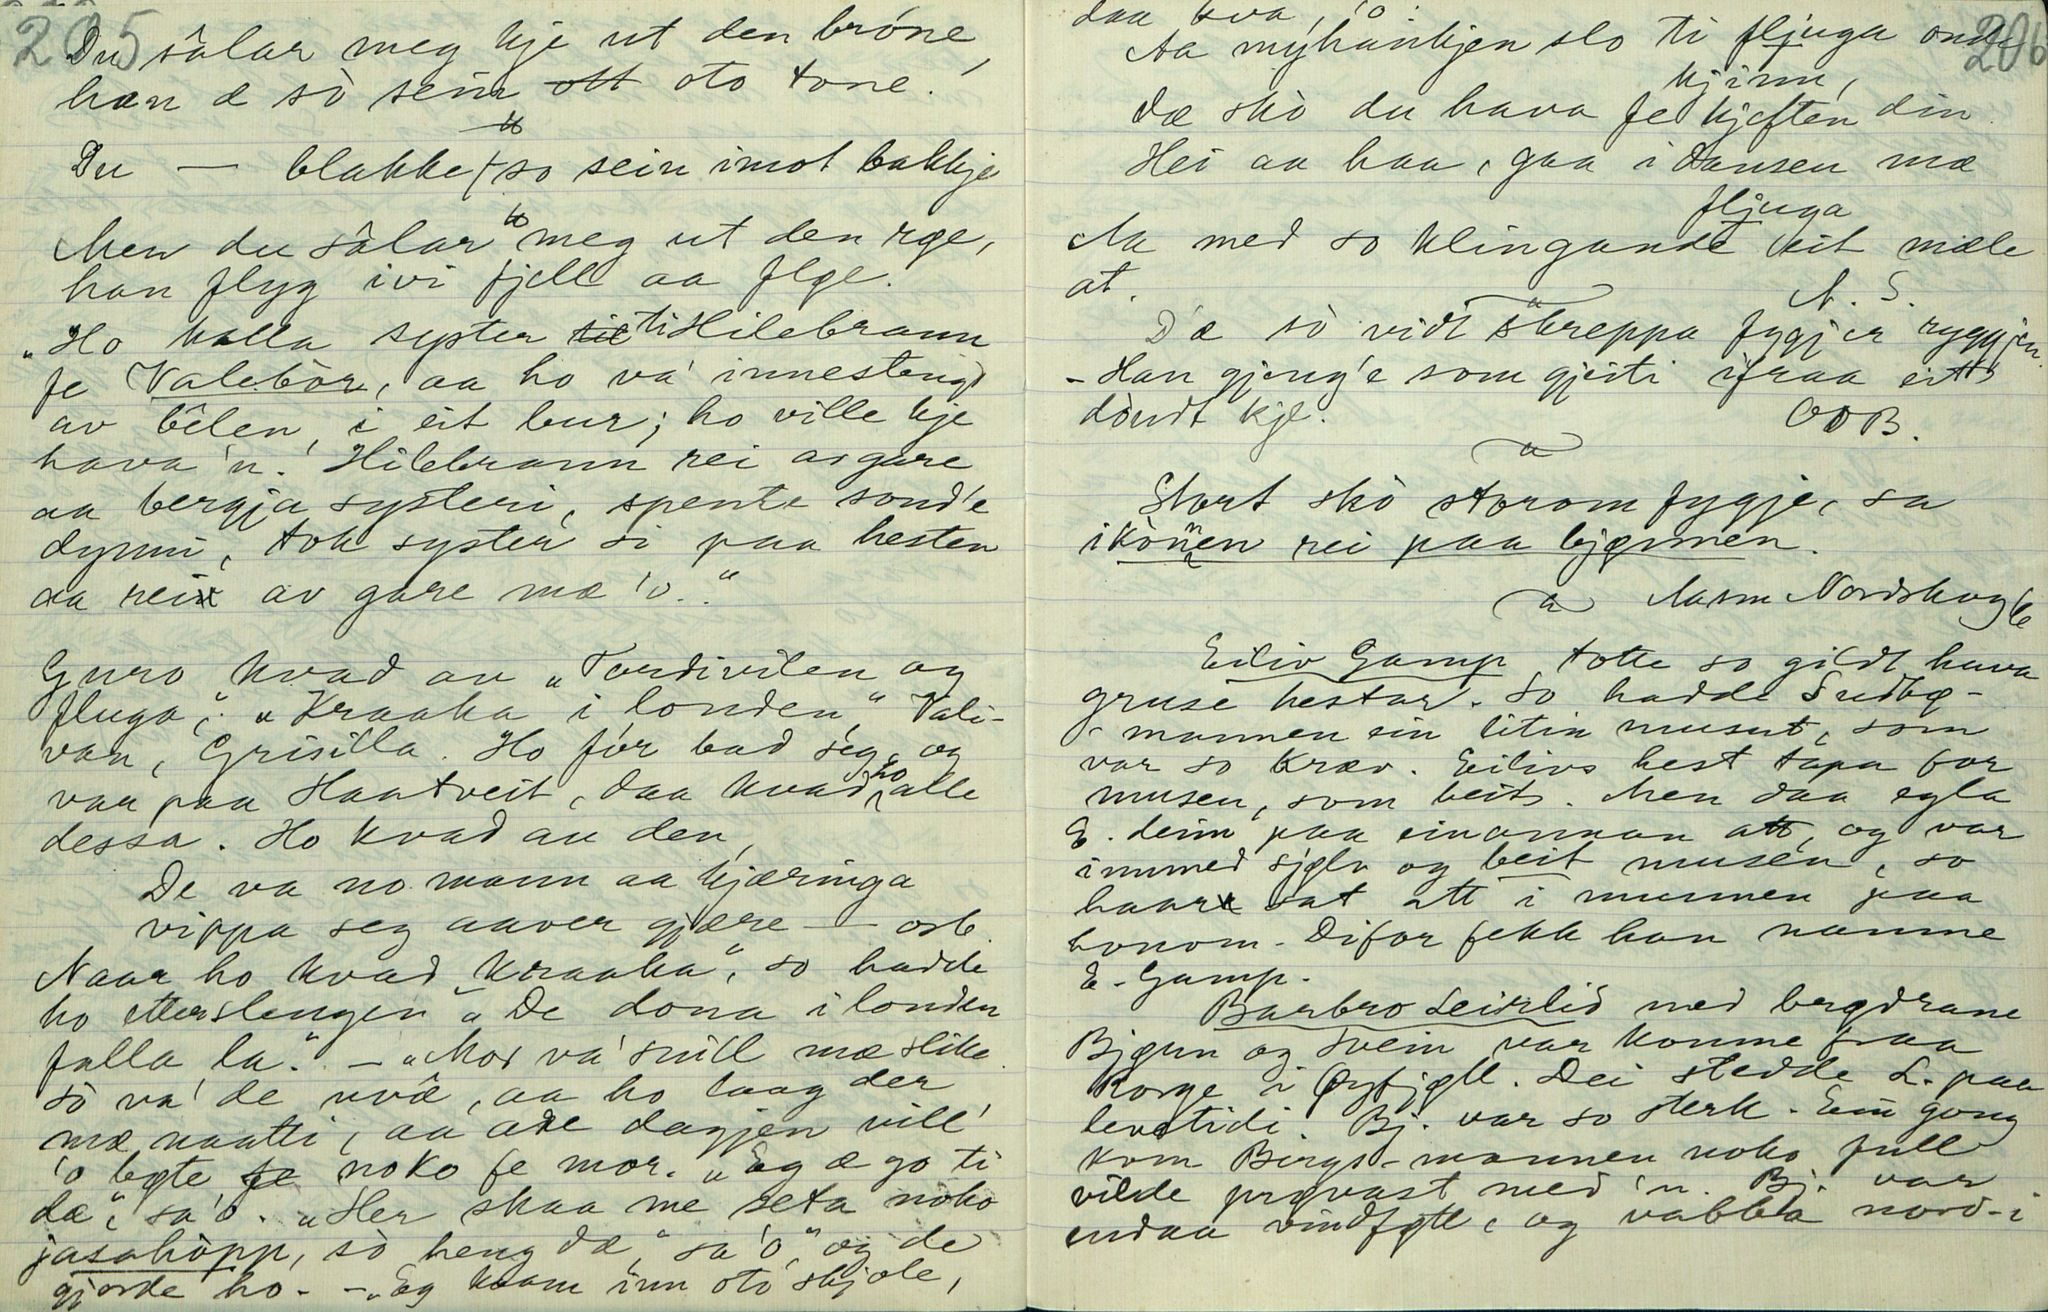 205
Du sâlar meg kje ut den brone,
han æ sò sein ott oto tone.
Du — blakke, so sein imot bakkje
Men du sâlar meg ut den røe,
han flyg ivi fjell aa fløe.
"Ho kalla syster til ti Hilebrann
fe Valebòr, aa ho va' innestengd
av bêlen, i eit bur; ho ville kje
hava 'n. Hilebrann rei av gare
aa bergja systeri, spente sond'e
dynni, tok syster si paa hesten
aa rei av gare mæ 'o."
Guro kvad au "Tordivilen og
fluga", "Kraaka i londen", Vali-
van, Grisilla. Ho fór bad seg, og
var paa Haatveit, daa kvad ho alle
dessa. Ho kvad au den,
De va no mann aa kjæringa
vippa seg aaver gjære — osb.
Naar ho kvad "Kraaka", so hadde
ho etterslengen "De dona i londen
falla la". — "Mor va' snill mæ slike
sò va' de uvê, aa ho laag der
mæ naatti, aa ade dagjen vill'
'o bøte fe noko fe mor. "Eg æ go ti
dæ", sa 'o. "Her skaa me seta noko
jasahòpp, sò heng dæ", sa 'o, og de
gjorde ho. - "Eg kaam inn oto skjole,
206
daa kva,
Aa myhánkjen slo ti fljuga onde
kjinn,
Dæ skò du hava fe kjeften din
Hei aa haa, gaa i dansen mæ
fljuga
Aa med so klingande eit mæle
at.
N. S.
D'æ sò vidt skreppa fygjer ryggjen.
- Han gjeng'e som gjeiti ifraa eitt
dòndt kje.
OOB.
Stort skò storom fygje, sa
ikònnen rei paa bjønnen.
Aasm Nordskog
Eiliv Gamp totte so gildt hava
gruse hestar. So hadde Sudbø-
mannen ein litin musut, som
var so kræv. Eilivs hest tapa for
musen, som beit. Men daa egla
E. deim paa einannan att, og var
innmed sjølv og beit musen, so
haar sat att i munnen paa
honom. Difor fekk han namne
E. Gamp.
Barbro Leirlid med brødrane
Bjønn og Svein var komne fraa
Korge i Øyfjell. Dei stedde L. paa
levetidi. Bj. var so sterk. Ein gong
kom Bergs-mannen noko full
vilde prøvast med 'n. Bj. var
endaa vindføtt, og vabbla nord-i